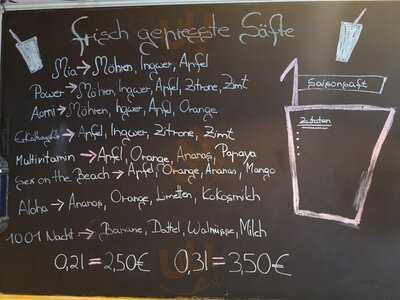 frisch gepresste Säfte
Mia → Möhren, Ingwer, Apfel
Power → Möhren, Ingwer, Apfel, Zitrone, Zimt
→ Möhren, Ingwer, Apfel, Orange
→ Apfel, Ingwer, Zitrone, Zimt
Multivitamin → Apfel, Orange, Ananas, Papaya
Sex on the Beach → Apfel, Orange, Ananas, Mango
Aloha → Ananas, Orange, Limetten, Kokosmilch
1001 Nacht → Banane, Dattel, Walnüsse, Milch
0,2l = 2,50€ 0,3l = 3,50€
Saisonsaft
Zutaten